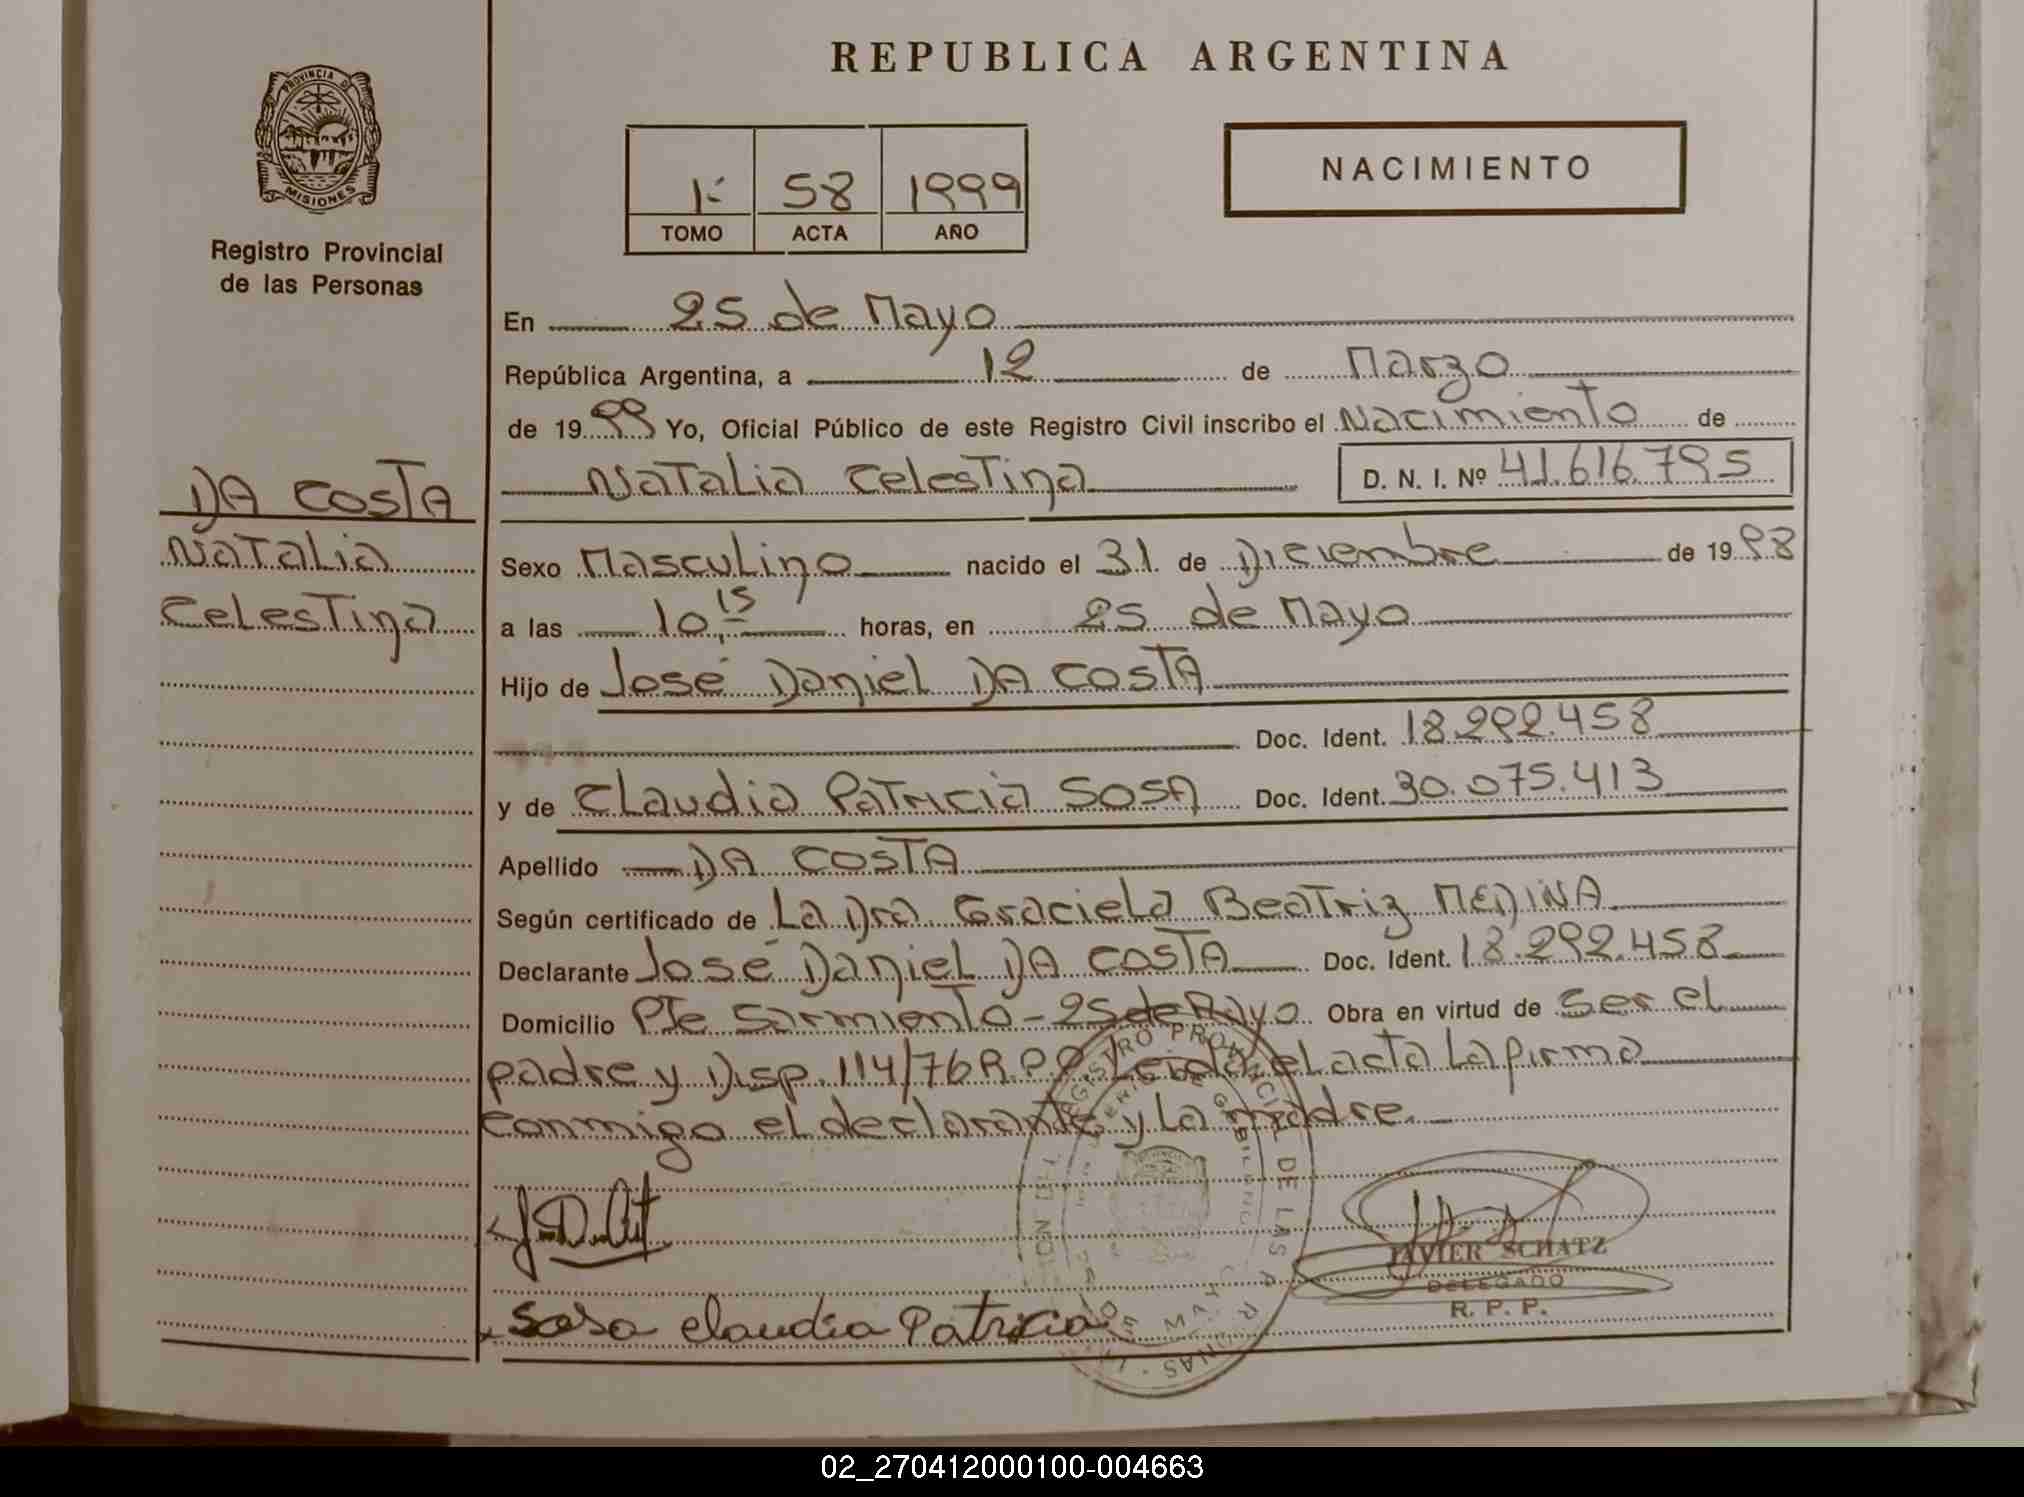 PROVINCIA DE
MISIONES
Registro Provincial
de las Personas
DA COSTA
Natalia
Celestina
REPUBLICA ARGENTINA
1: 58 1999
TOMO ACTA AÑO
NACIMIENTO
En 25 de Mayo
República Argentina, a 12 de Marzo
de 1999 Yo, Oficial Público de este Registro Civil inscribo el Nacimiento de
Natalia Celestina D. N. I. Nº 41.616.795
Sexo Masculino nacido el 31 de Diciembre de 1998
a las 10,15 horas, en 25 de Mayo
Hijo de José Daniel DA COSTA
Doc. Ident. 18.292.458
y de Claudia Patricia SOSA Doc. Ident. 30.075.413
Apellido DA COSTA
Según certificado de La Dra Graciela Beatriz MEDINA
Declarante José Daniel DA COSTA Doc. Ident. 18.292.458
Domicilio Pte Sarmiento - 25 de Mayo Obra en virtud de ser el
padre y Disp. 114/76 R.P.P. Leida el acta la firma
conmigo el declarante y la madre.
JAVIER SCHATZ
DELEGADO
R. P. P.
Sosa Claudia Patricia
02_270412000100-004663